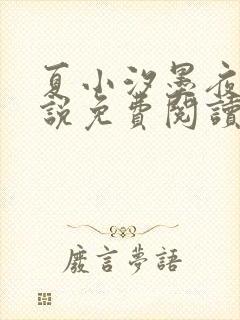 夏小汐墨夜
說免費閱讀
廢言夢語